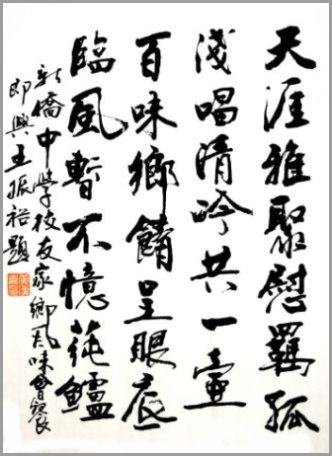 天涯雅聚慰羈孤
淺唱清吟共一壺
百味鄉餚呈眼底
臨風暫不憶蒓鱸
新僑中學校友家鄉風味會餐
即興王振裕題